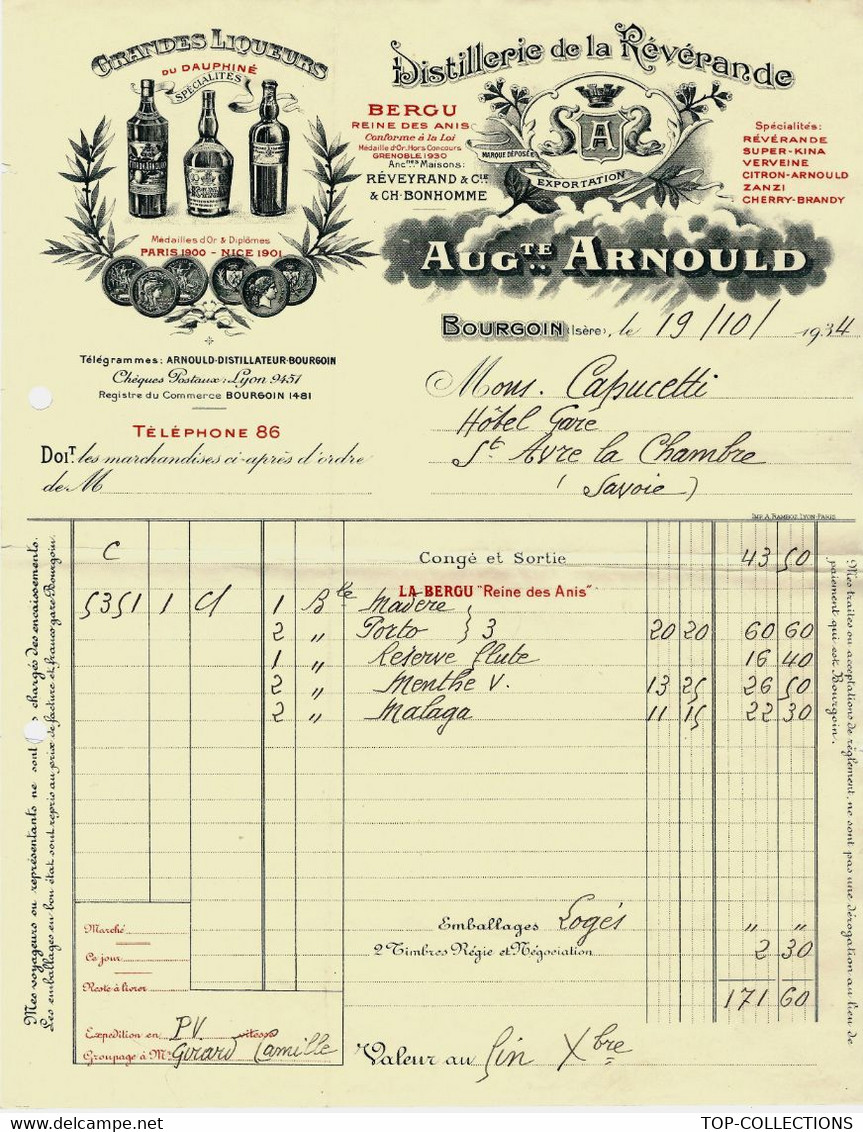 GRANDES LIQUEURS
DU DAUPHINÉ
SPÉCIALITÉS
Médailles d'Or & Diplômes
PARIS 1900 - NICE 1901
Télégrammes: ARNOULD-DISTILLATEUR-BOURGOIN
Chèques Postaux: Lyon 9451
Registre du Commerce BOURGOIN 1481
TÉLÉPHONE 86
DOIT. les marchandises ci-après d'ordre
de M
Distillerie de la Révérande
BERGU
REINE DES ANIS
Conforme à la Loi
Médaille d'Or, Hors Concours
GRENOBLE 1930
Ancnes Maisons:
RÉVEYRAND & Cie
& CH. BONHOMME
MARQUE DÉPOSÉE
A
EXPORTATION
Spécialités:
RÉVÉRANDE
SUPER-KINA
VERVEINE
CITRON-ARNOULD
ZANZI
CHERRY-BRANDY
AUGTE ARNOULD
BOURGOIN (Isère), le 19/10/1934
Mons. Capucetti
Hôtel Gare
St Avre la Chambre
(Savoie)
IMP. A. RAMBOZ, LYON-PARIS
C Congé et Sortie 43 50
LA BERGU "Reine des Anis"
5351 1 C/ 1 Bte Madère
2 " Porto } 3 20 20 60 60
1 " Réserve flute 16 40
2 " Menthe V. 13 25 26 50
2 " Malaga 11 15 22 30
Emballages Logés " "
2 Timbres Régie et Négociation 2 30
171 60
Marché
Ce jour
Reste à livrer
Expedition en P.V. vitesse
Groupage à Mr Girard Camille
Valeur au fin Xbre
Mes voyageurs ou représentants ne sont chargés des encaissements.
Les emballages en bon état sont repris au prix de facture et franco gare Bourgoin.
Mes traites ou acceptations de règlement, ne sont pas une dérogation au lieu de
paiement qui est Bourgoin.
TOP-COLLECTIONS